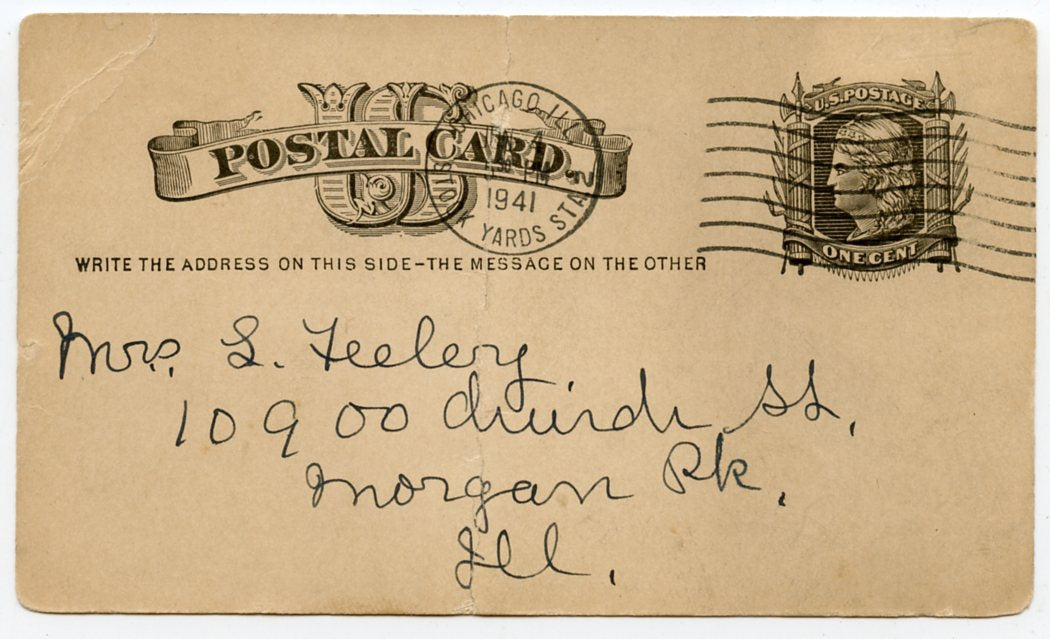 US
POSTAL CARD.
CHICAGO, ILL.
1941
YARDS STA.
U.S. POSTAGE
ONE CENT
WRITE THE ADDRESS ON THIS SIDE-THE MESSAGE ON THE OTHER
Mrs. L. Feeley
10900 church St,
Morgan Pk,
Ill,